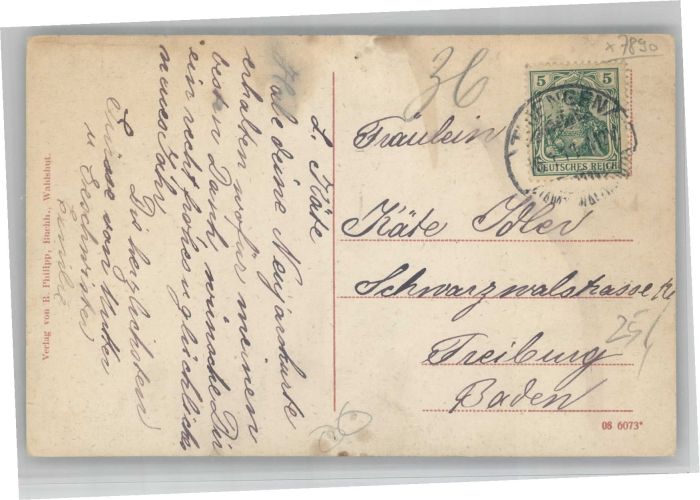 L. Käte
Habe deine Neujarskarte
erhalten wofür meinen
besten Dank, wünsche Dir
ein recht frohes u glückliches
neues Jahr
Die herzlichsten
Grüsse von Mutter
u Geschwister
Verlag von R. Philipp, Buchh., Waldshut.
x 7890
36
5 5
DEUTSCHES REICH
Fräulein
Käte Idler
Schwarzwalstrasse
Freiburg
Baden
25
08 6073*